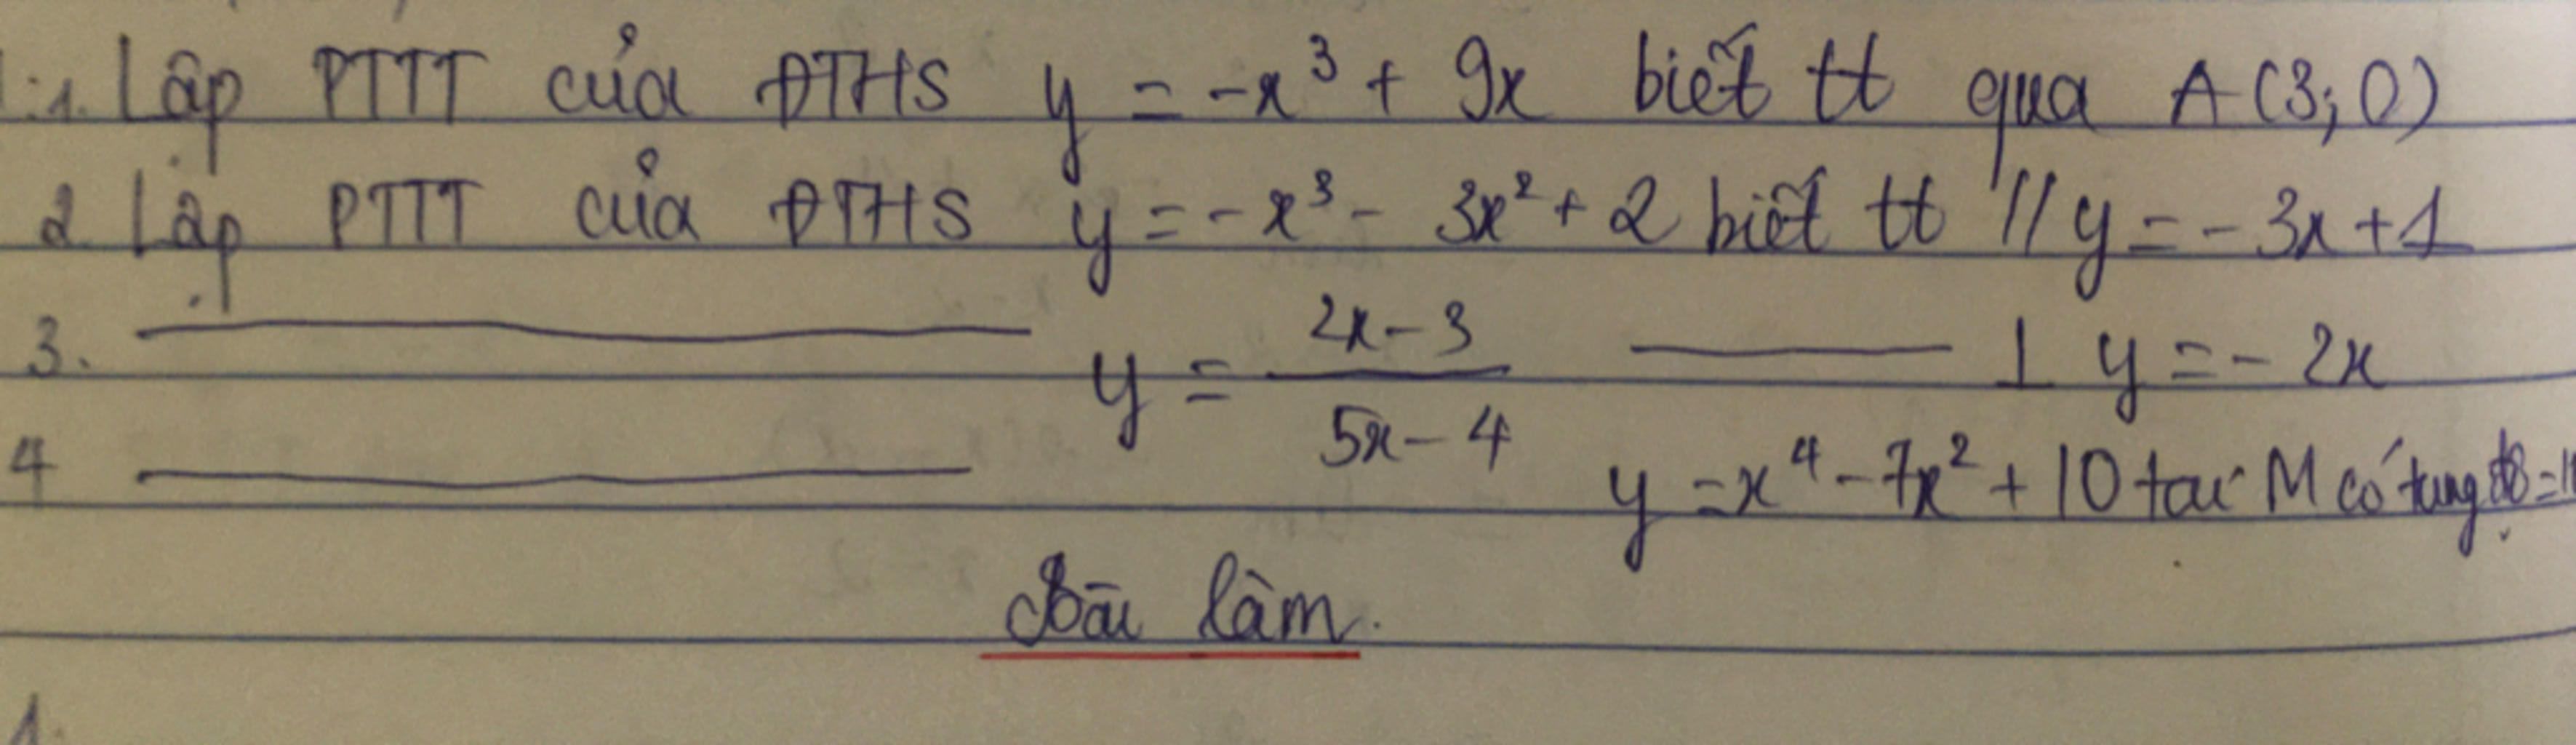 1. Lập PTTT của ĐTHS y = -x³ + 9x biết tt qua A(3;0)
2 Lập PTTT của ĐTHS y = -x³ - 3x² + 2 biết tt // y = -3x+1
3. y = \frac{2x-3}{5x-4} ⊥ y = -2x
4 y = x⁴ - 7x² + 10 tại M có tung độ =
Bài làm.
1.